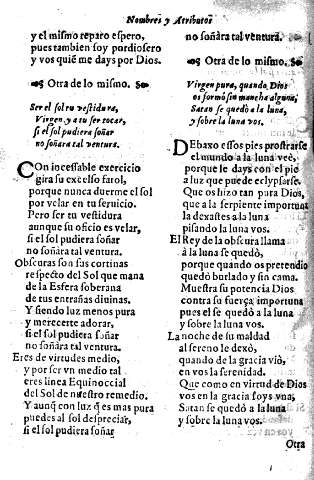 Nombres y Atributos
y el mismo reparo espero,
pues tambien soy pordiosero
y vos quiē me days por Dios.
Otra de lo mismo.
Ser el sol tu vestidura,
Virgen, y a tu ser tocar,
si el sol pudiera soñar
no soñàra tal ventura.
COn incessable exercicio
gira su excelso farol,
porque nunca duerme el sol
por velar en tu seruicio.
Pero ser tu vestidura
aunque su oficio es velar,
si el sol pudiera soñar
no soñàra tal ventura.
Obscuras son sus cortinas
respecto del Sol que mana
de la Esfera soberana
de tus entrañas diuinas.
Y siendo luz menos pura
y merecerte adorar,
si el sol pudiera soñar
no soñàra tal ventura.
Eres de virtudes medio,
y por ser vn medio tal
eres linea Equinoccial
del Sol de nuestro remedio.
Y aunq̄ con luz q̄ es mas pura
puedes al sol despreciar,
si el sol pudiera soñar
no soñàra tal ventura.
Otra de lo mismo.
Virgen pura, quando Dios
os formò sin mancha alguna,
Satan se quedò a la luna,
y sobre la luna vos.
DEbaxo essos pies prostrarse
el mundo a la luna veè,
porque le days con el pie
a luz que puede eclypsarse.
Que os hizo tan pura Dios,
que a la serpiente importuna
la dexastes a la luna
pisando la luna vos.
El Rey de la obscura llama
à la luna se quedò,
porque quando os pretendio
quedò burlado y sin cama.
Muestra su potencia Dios
contra su fuerça importuna
pues el se quedò a la luna
y sobre la luna vos.
La noche de su maldad
al sereno le dexò,
quando de la gracia viò,
en vos la serenidad.
Que como en virtud de Dios
vos en la gracia soys vna,
Satan se quedò a la luna
y sobre la luna vos.
Otra